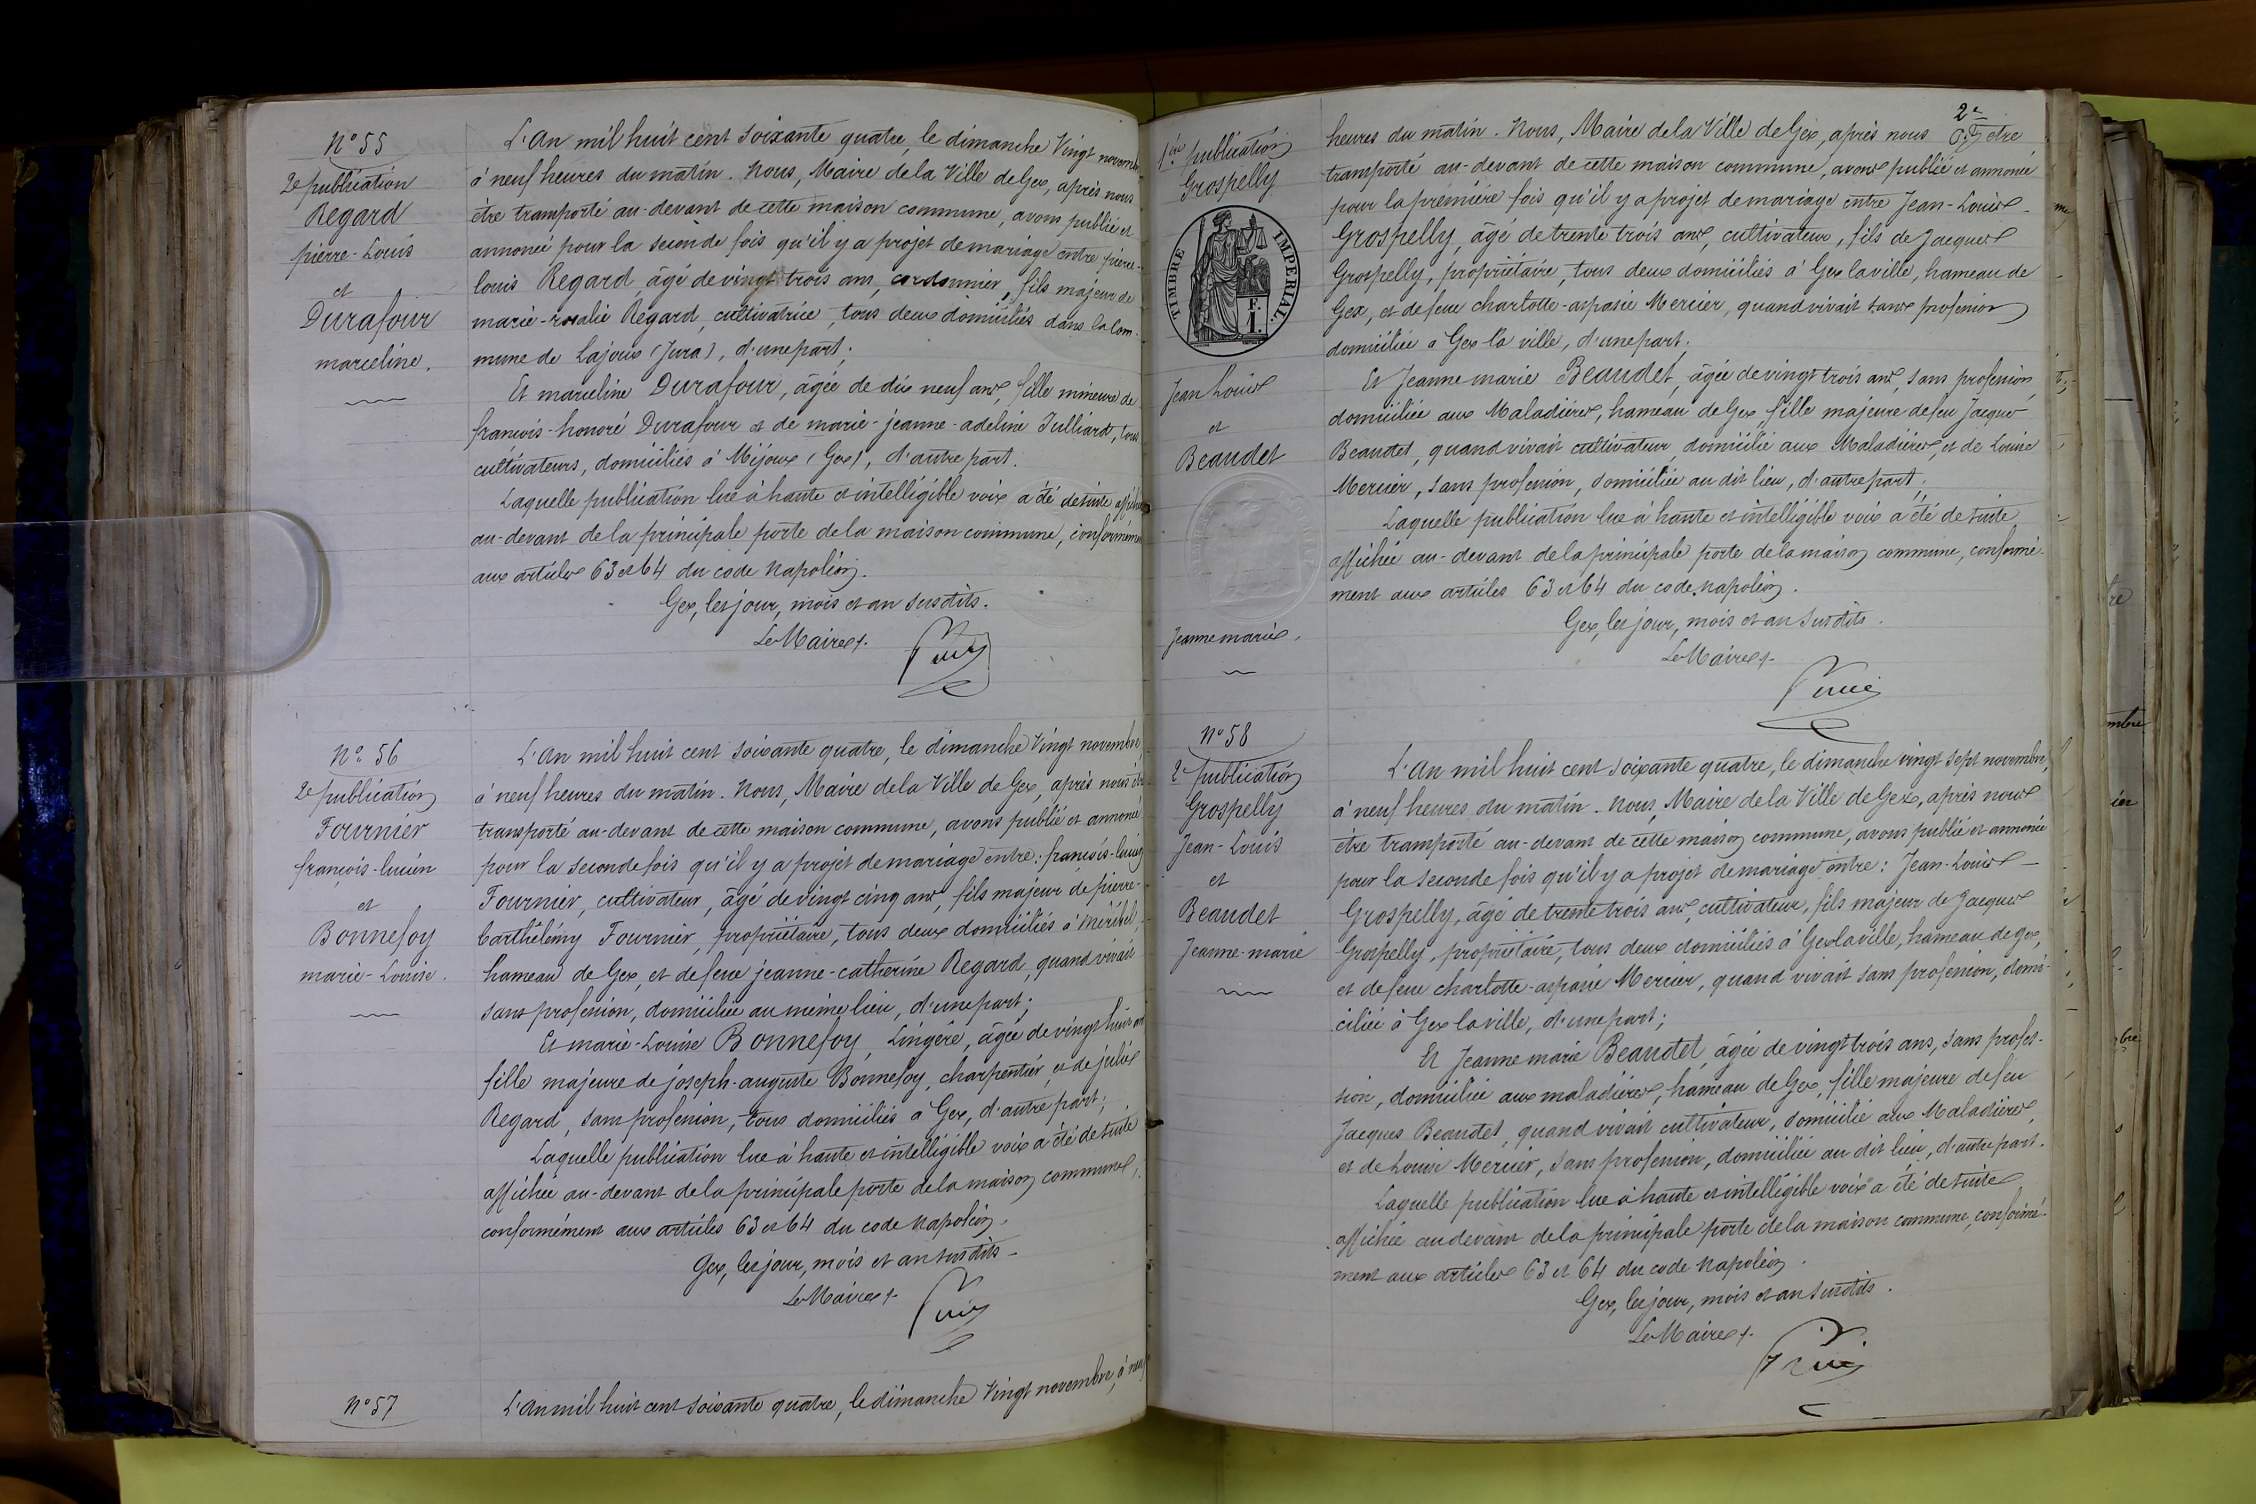 N° 55
2e publication
Regard
pierre-Louis
et
Durafour
marceline.
L'An mil huit cent soixante quatre, le dimanche Vingt novembre
à neuf heures du matin. Nous, Maire de la Ville de Gex, après nous
être transporté au-devant de cette maison commune, avons publié et
annoncé pour la seconde fois qu'il y a projet de mariage entre pierre-
louis Regard, âgé de vingt trois ans, cordonnier, fils majeur de
marie-rosalie Regard, cultivatrice, tous deux domiciliés dans la Com-
mune de Lajoux (Jura), d'une part;
Et marceline Durafour, âgée de dix neuf ans, fille mineure de
françois-honoré Durafour et de marie-jeanne-adeline Julliard, tous
cultivateurs, domiciliés à Mijoux (Gex), d'autre part.
Laquelle publication lue à haute et intelligible voix a été de suite affichée
au-devant de la principale porte de la maison commune, conformément
aux articles 63 et 64 du code Napoléon.
Gex, les jour, mois et an susdits.
Le Maire
N° 56
2e publication
Fournier
françois-lucien
et
Bonnefoy
marie-Louise.
L'An mil huit cent soixante quatre, le dimanche Vingt novembre,
à neuf heures du matin. Nous, Maire de la Ville de Gex, après nous être
transporté au-devant de cette maison commune, avons publié et annoncé
pour la seconde fois qu'il y a projet de mariage entre: françois-lucien
Fournier, cultivateur, âgé de vingt cinq ans, fils majeur de pierre-
barthélémy Fournier, propriétaire, tous deux domiciliés à Méribel,
hameau de Gex, et de feue jeanne-catherine Regard, quand vivait
sans profession, domiciliée au même lieu, d'une part;
Et marie-Louise Bonnefoy, Lingère, âgée de vingt huit ans
fille majeure de joseph-auguste Bonnefoy, charpentier, et de julie
Regard, sans profession, tous domiciliés à Gex, d'autre part;
Laquelle publication lue à haute et intelligible voix a été de suite
affichée au-devant de la principale porte de la maison commune,
conformément aux articles 63 et 64 du code Napoléon.
Gex, les jour, mois et an susdits
Le Maire
N° 57
L'An mil huit cent soixante quatre, le dimanche Vingt novembre, à neuf
1ère publication
Grospelly
TIMBRE IMPERIAL.
F.
1.
Jean Louis
et
Beaudet
Jeanne marie.
2e
heures du matin. Nous, Maire de la Ville de Gex, après nous être
transporté au-devant de cette maison commune, avons publié et annoncé
pour la première fois qu'il y a projet de mariage entre Jean-Louis
Grospelly, âgé de trente trois ans, cultivateur, fils de Jacques
Grospelly, propriétaire, tous deux domiciliés à Gex la ville, hameau de
Gex, et de feue charlotte-aspasie Mercier, quand vivait sans profession
domiciliée à Gex la ville, d'une part;
Et Jeanne marie Beaudet, âgée de vingt trois ans, sans profession,
domiciliée aux Maladières, hameau de Gex, fille majeure de feu Jacques
Beaudet, quand vivait cultivateur domicilié aux Maladières, et de Louise
Mercier, sans profession, domiciliée au dit lieu, d'autre part;
Laquelle publication lue à haute et intelligible voix a été de suite
affichée au-devant de la principale porte de la maison commune, conformé-
ment aux articles 63 et 64 du code Napoléon.
Gex, les jour, mois et an susdits.
Le Maire
N° 58
2e publication
Grospelly
Jean-Louis
et
Beaudet
Jeanne-marie
L'An mil huit cent soixante quatre, le dimanche vingt sept novembre,
à neuf heures du matin. Nous, Maire de la Ville de Gex, après nous
être transporté au-devant de cette maison commune, avons publié et annoncé
pour la seconde fois qu'il y a projet de mariage entre: Jean-Louis
Grospelly, âgé de trente trois ans, cultivateur, fils majeur de Jacques
Grospelly, propriétaire, tous deux domiciliés à Gex la ville, hameau de gex,
et de feue charlotte-aspasie Mercier, quand vivait sans profession, domi-
ciliée à Gex la ville, d'une part;
Et Jeanne marie Beaudet, âgée de vingt trois ans, sans profes-
sion, domiciliée aux maladières, hameau de Gex, fille majeure de feu
Jacques Beaudet, quand vivait cultivateur, domicilié aux Maladières,
et de Louise Mercier, sans profession, domiciliée au dit lieu, d'autre part.
Laquelle publication lue à haute et intelligible voix a été de suite
affichée au devant de la principale porte de la maison commune, conformé-
ment aux articles 63 et 64 du code Napoléon.
Gex, les jour, mois et an susdits.
Le Maire